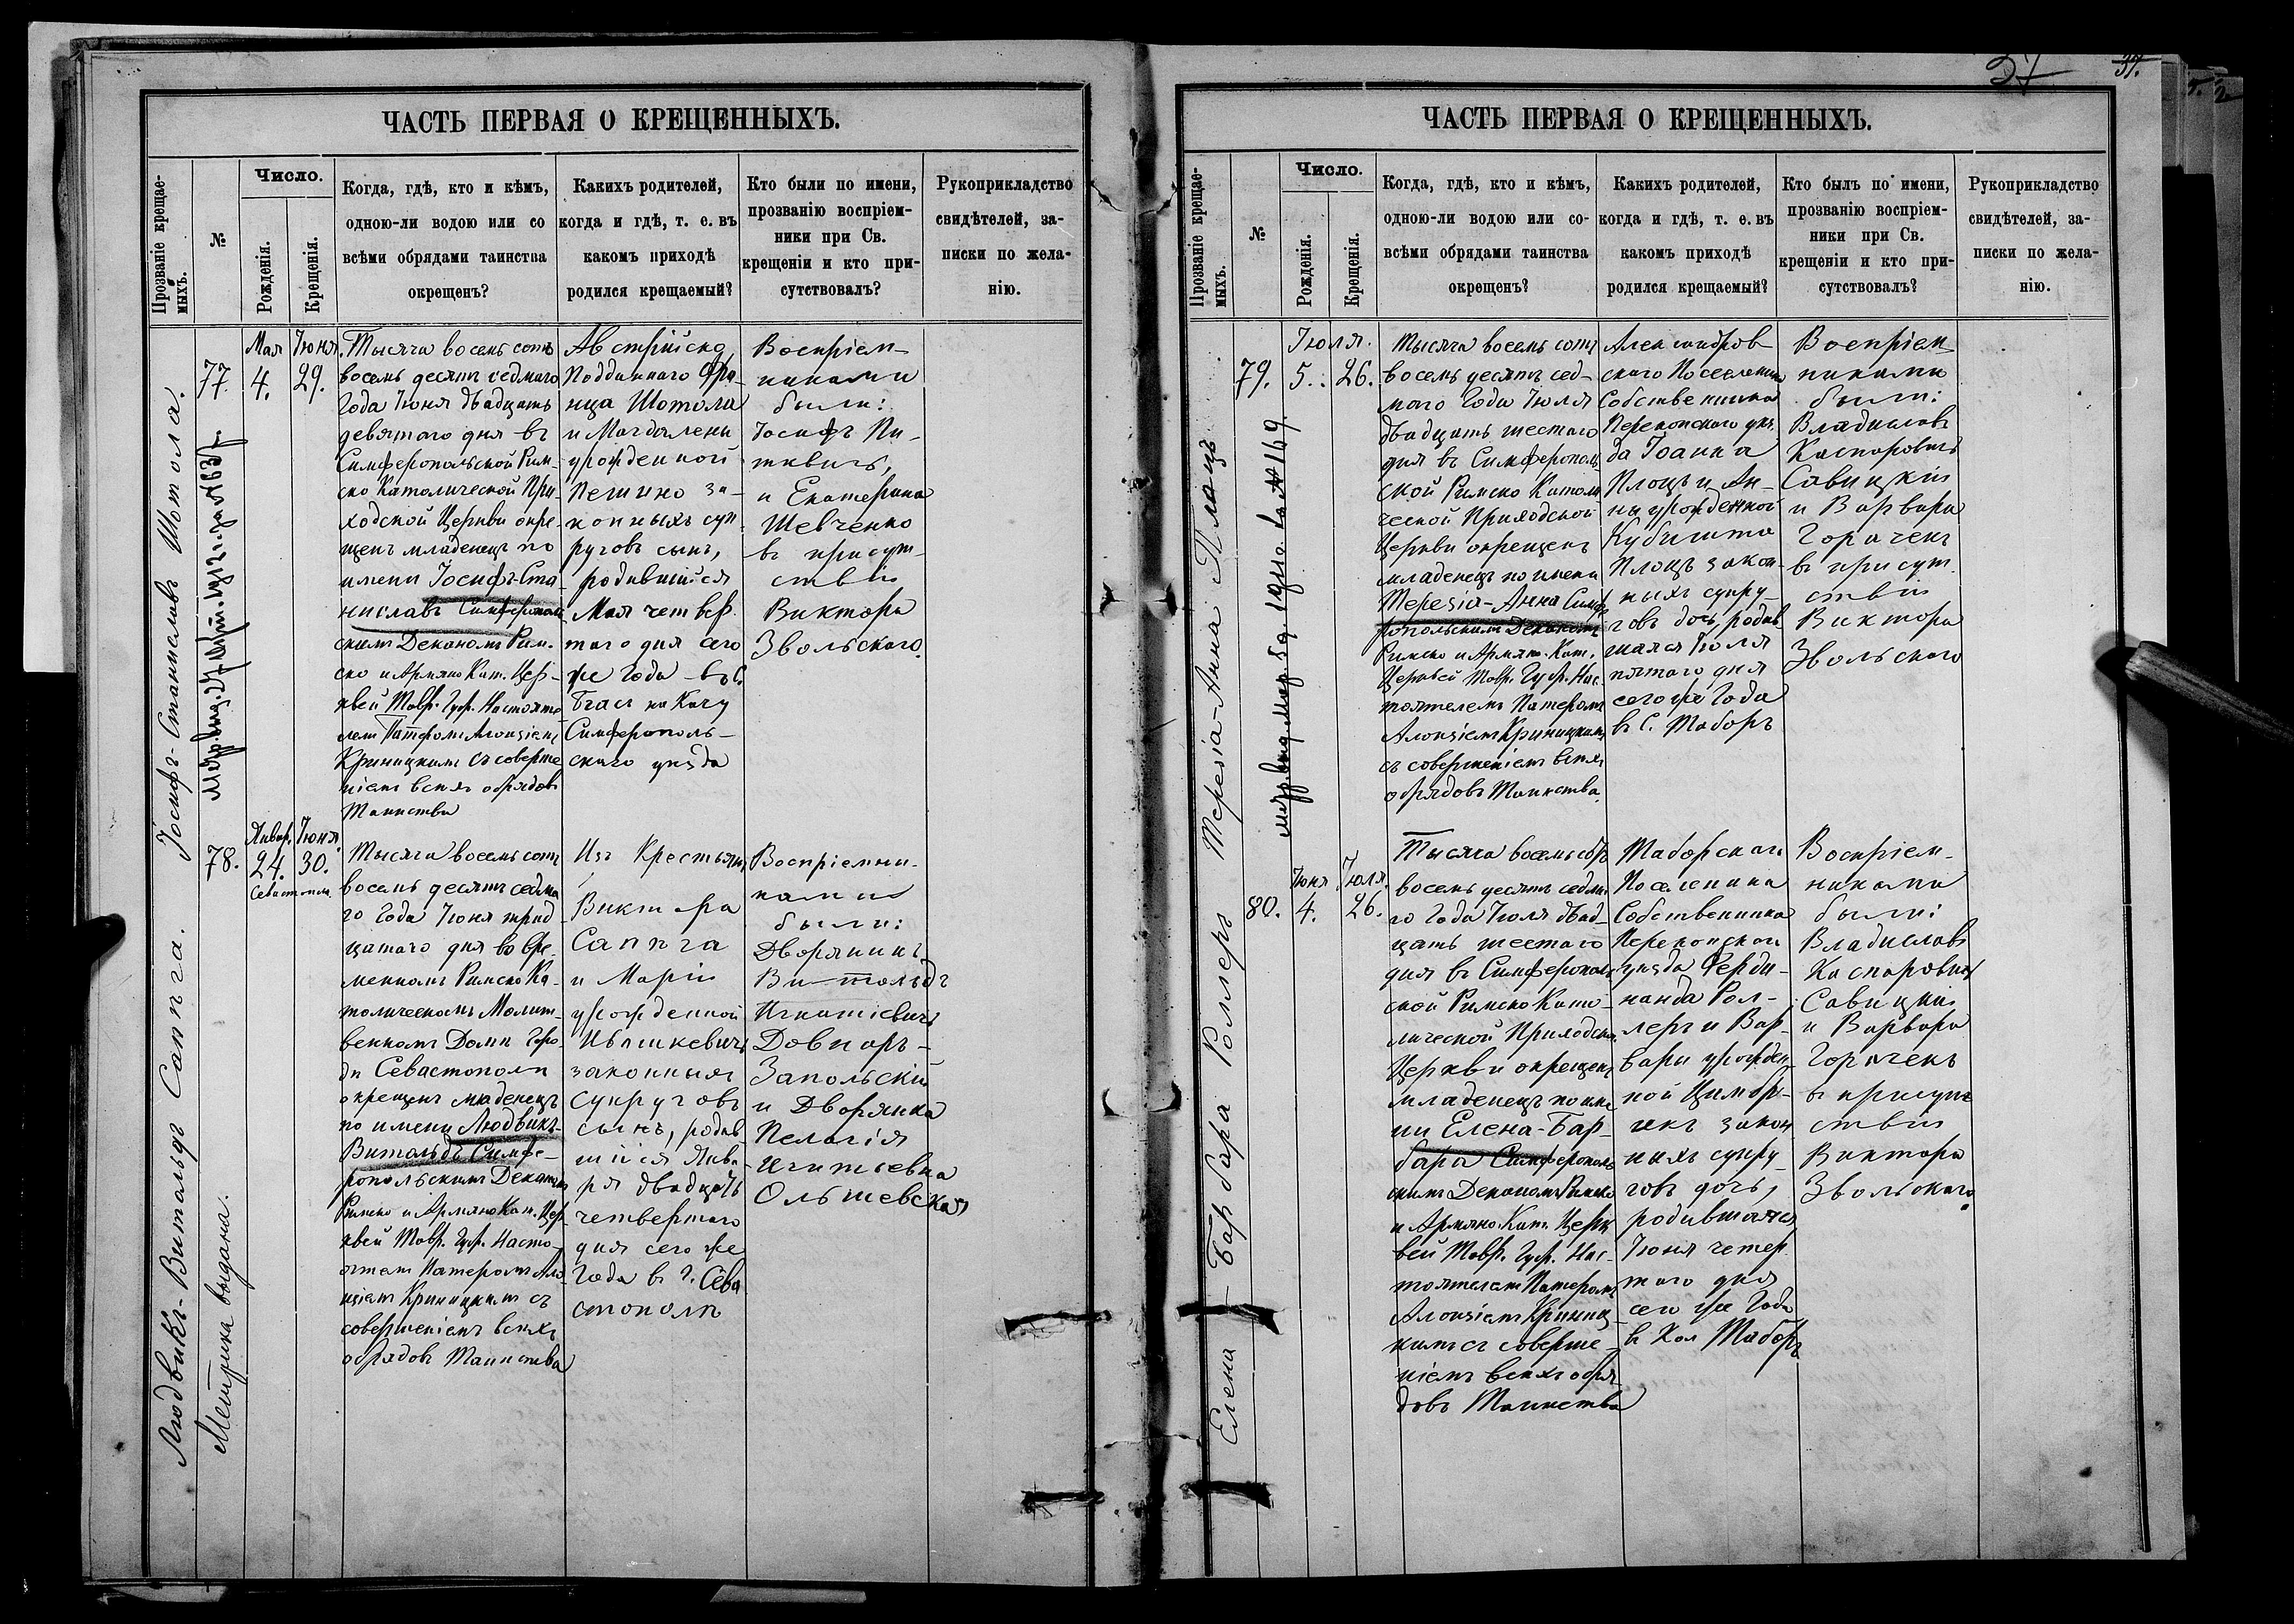 37
37.
ЧАСТЬ ПЕРВАЯ О КРЕЩЕННЫХЪ.
Прозваніе крещае-
мыхъ.
№
Число.
Рожденія.
Крещенія.
Когда, гдѣ, кто и кѣмъ,
одною-ли водою или со
всѣми обрядами таинства
окрещенъ?
Какихъ родителей,
когда и гдѣ, т. е. въ
какомъ приходѣ
родился крещаемый?
Кто были по имени,
прозванію воспріем-
ники при Св.
крещеніи и кто при-
сутствовалъ?
Рукоприкладство
свидѣтелей, за-
писки по жела-
нію.
Іосифъ-Станиславъ Шотола.
77.
Мая
4.
Іюня
29.
Тысяча восемь сотъ
восемь десятъ седмаго
Года Іюня двадцать
девятаго дня въ
Симферопольской Рим-
ско Католической При-
ходской Церкви окре-
щенъ младенецъ по
имени Іосифъ-Ста-
ниславъ Симферополь
скимъ Деканомъ Рим-
ско и Армяно Кат. Цер-
квей Тавр. Губ. Настояте
лемъ Патеромъ Алоизіемъ
Криницкимъ съ соверше
ніемъ всѣхъ обрядовъ
Таинства
Австрійско
Подданнаго Фра-
нца Шотола
и Магдалены
урожденной
законныхъ суп-
руговъ сынъ,
родившійся
Мая четвер-
таго дня сего
же Года въ С.
Симферополь-
скаго уѣзда
Воспріем-
никами
были:
Іосифъ Пи-
ткевичъ,
и Екатерина
Шевченко
въ присут-
ствіи
Виктора
Звольскаго.
Людвикъ-Витольдъ Сапѣга.
Метрика выдана.
78.
Январ.
24.
Іюня.
30.
Севастополь.
Тысяча восемь сотъ
восемь десятъ седма
го Года Іюня трид
цатаго дня во вре-
менномъ Римско Ка-
толическомъ Молит-
венномъ Домѣ Горо-
да Севастополя
окрещенъ младенецъ
по имени Людвикъ-
Витольдъ Симфе-
ропольскимъ Деканомъ
Римско и Армяно Кат. Цер-
квей Тавр. Губ. Насто-
ятелем Патеромъ Ало
изіемъ Криницкимъ съ
совершеніемъ всѣхъ
обрядовъ Таинства
Изъ Крестьянъ
Виктора
Сапѣга
и Маріи
урожденной
Ивашкевичъ
законныхъ
супруговъ
сынъ, родив-
шійся Янва-
ря двадцать
четвертаго
дня сего же
Года въ г. Сева
стополѣ
Воспріемни-
ками
были:
Дворянинъ
Витольдъ
Игнатіевичъ
Довнаръ-
Запольскій
и Дворянка
Пелагія
Игнатьевна
Ольшевская
ЧАСТЬ ПЕРВАЯ О КРЕЩЕННЫХЪ.
Прозваніе крещае-
мыхъ.
№
Число.
Рожденія.
Крещенія.
Когда, гдѣ, кто и кѣмъ,
одною-ли водою или со-
всѣми обрядами таинства
окрещенъ?
Какихъ родителей,
когда и гдѣ, т. е. въ
какомъ приходѣ
родился крещаемый?
Кто былъ по имени,
прозванію воспріем-
ники при Св.
крещеніи и кто при-
сутствовалъ?
Рукоприкладство
свидѣтелей, за-
писки по жела-
нію.
Терезія-Анна Плоцъ
79.
Іюля.
5.
26.
Тысяча восемь сотъ
восемь десятъ сед-
маго Года Іюля
двадцать шестаго
дня въ Симферополь
ской Римско Катол
ческой Приходской
Церкви окрещенъ
младенецъ по имени
Терезія-Анна Симфе
ропольскимъ Деканомъ
Римско и Армяно. Кат.
Церквей Тавр. Губ. Нас-
тоятелемъ Патеромъ
Алоизіемъ Криницкимъ
съ совершеніемъ всѣхъ
обрядовъ Таинства.
Александров-
скаго Поселенца
Собственника
Перекопскаго уѣз
да Іоанна
Плоцъ и Ан-
ны урожденной
Кубишта
Плоцъ закон-
ныхъ супру-
говъ дочь, родив
шаяся Іюля
пятаго дня
сего же Года
въ С. Таборъ
Воспріем-
никами
были:
Владиславъ
Каспаровичъ
Савицкій
и Варвара
Горачекъ
въ присут-
ствіи
Виктора
Звольскаго
Елена-Барбара Роллеръ
80.
Іюня
4.
Іюля.
26.
Тысяча восемь сотъ
восемь десятъ седма-
го Года Іюля двад-
цать шестаго
дня въ Симферополь
ской Римско Като-
лической Приходской
Церкви окрещенъ
младенецъ по име
ни Елена-Бар-
бара Симферополь
скимъ Деканомъ Римско
и Армяно. Кат. Церк
вей Тавр. Губ. Нас-
тоятелемъ Патеромъ
Алоизіемъ Криниц-
кимъ съ соверше-
ніемъ всѣхъ обря-
довъ Таинства
Таборскаго
Поселенца
Собственника
Перекопскаго
уѣзда Ферди-
нанда Рол-
леръ и Вар-
вары урожден
ной
законныхъ супру-
говъ дочь,
родившаяся
Іюня четвер
таго дня
сего же Года
въ Кол Таборъ
Воспріем-
никами
были:
Владиславъ
Каспаровичъ
Савицкій
и Варвара
Горачекъ
въ присут
ствіи
Виктора
Звольскаго